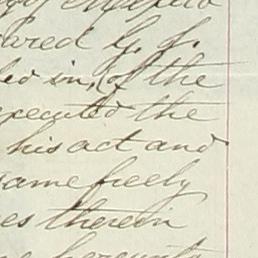 ared G. F.
led in, of the
executed the
his act and
same freely
es therein
hereunto